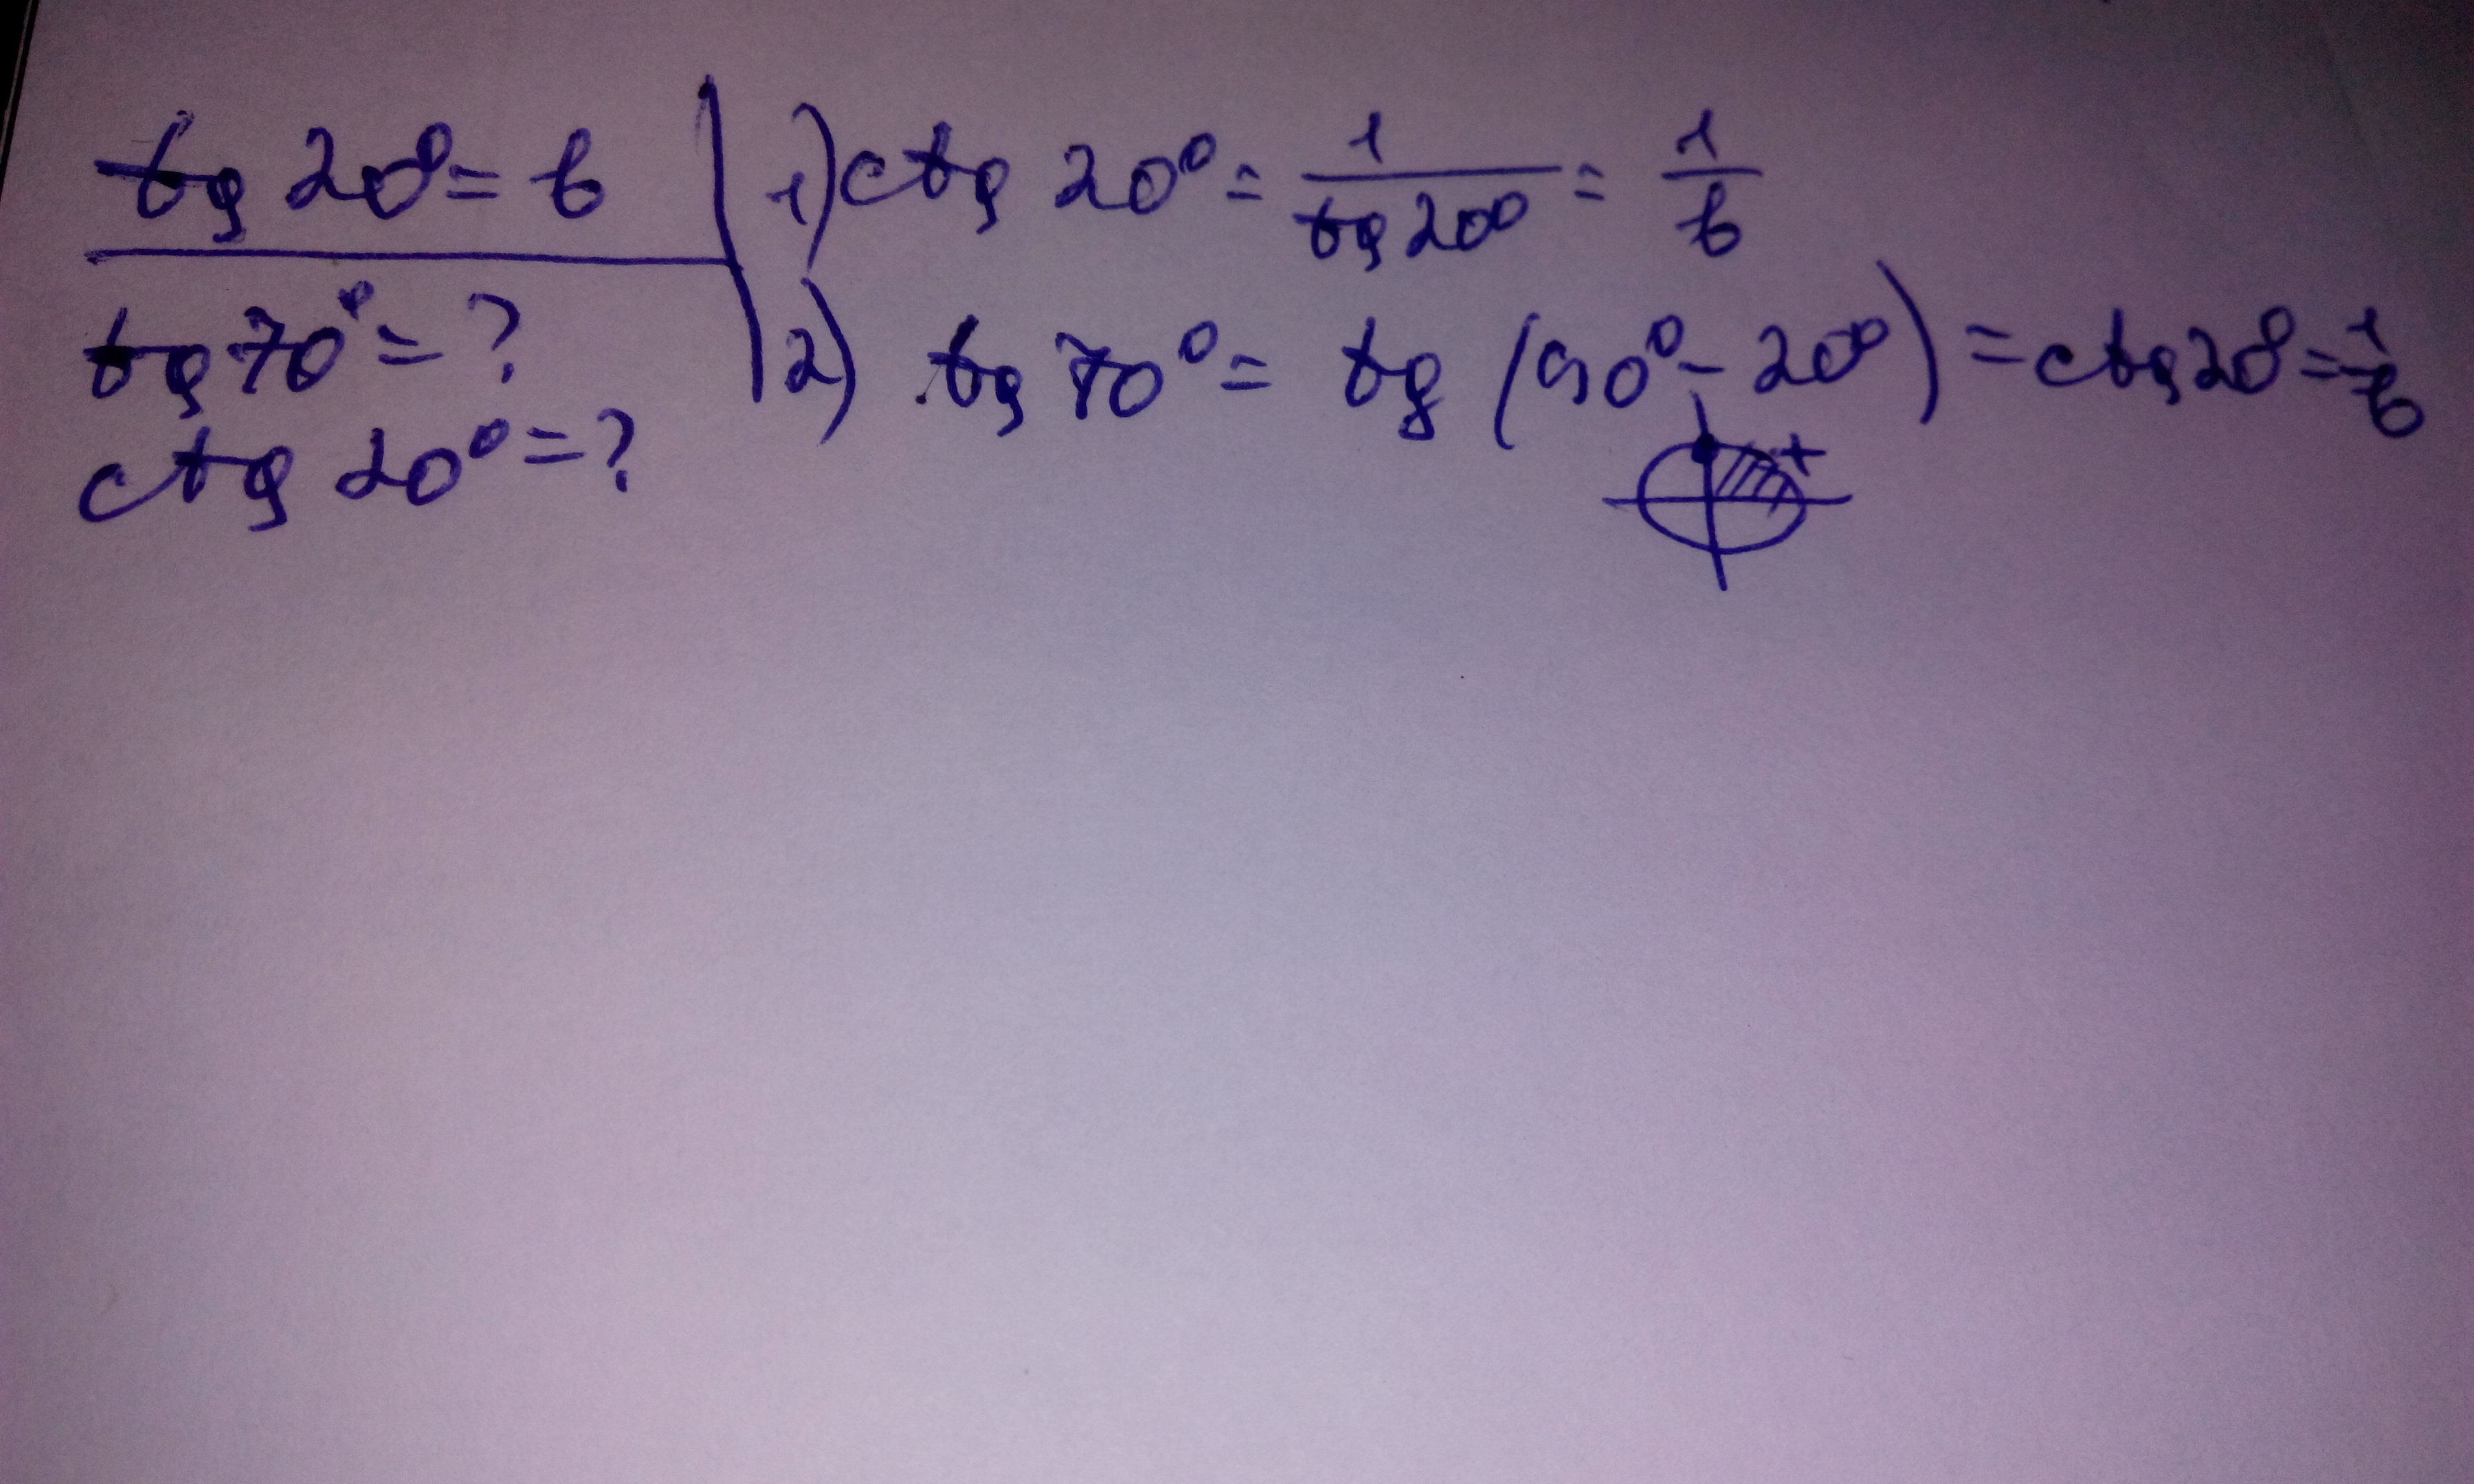 tg 20° = b
tg 70° = ?
ctg 20° = ?
1) ctg 20° = 1/tg 20° = 1/b
2) tg 70° = tg (90° - 20°) = ctg 20° = 1/b
+